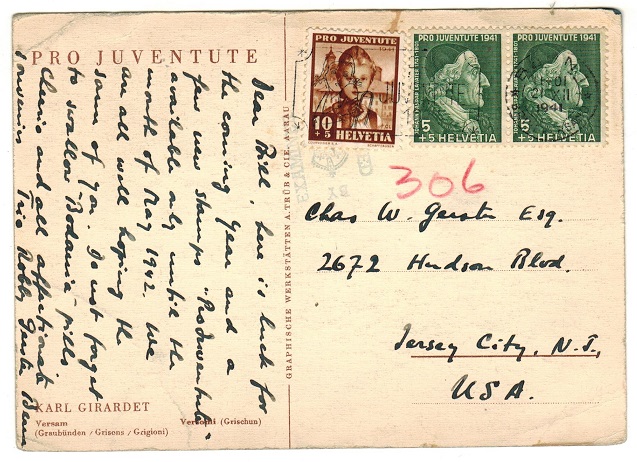 PRO JUVENTUTE
Dear Bill, here is luck for
the coming year and a
few new stamps "Pro Juventute"
available only until the
month of May 1942. We
are all well hoping the
same of you. Do not forget
to swallow pills
and all affectionate
souvenirs
KARL GIRARDET
Versam Versomi (Grischun)
(Graubünden / Grisons / Grigioni)
GRAPHISCHE WERKSTÄTTEN A. TRÜB & CIE. AARAU
PRO JUVENTUTE
1941
10
+5 HELVETIA
PRO JUVENTUTE 1941
JOHANN KASPAR LAVATER 1741-1801
5
+5 HELVETIA
PRO JUVENTUTE 1941
5
+5 HELVETIA
1941
306
Chas W. Gerster Esq.
2672 Hudson Blvd.
Jersey City, N.J.,
USA.